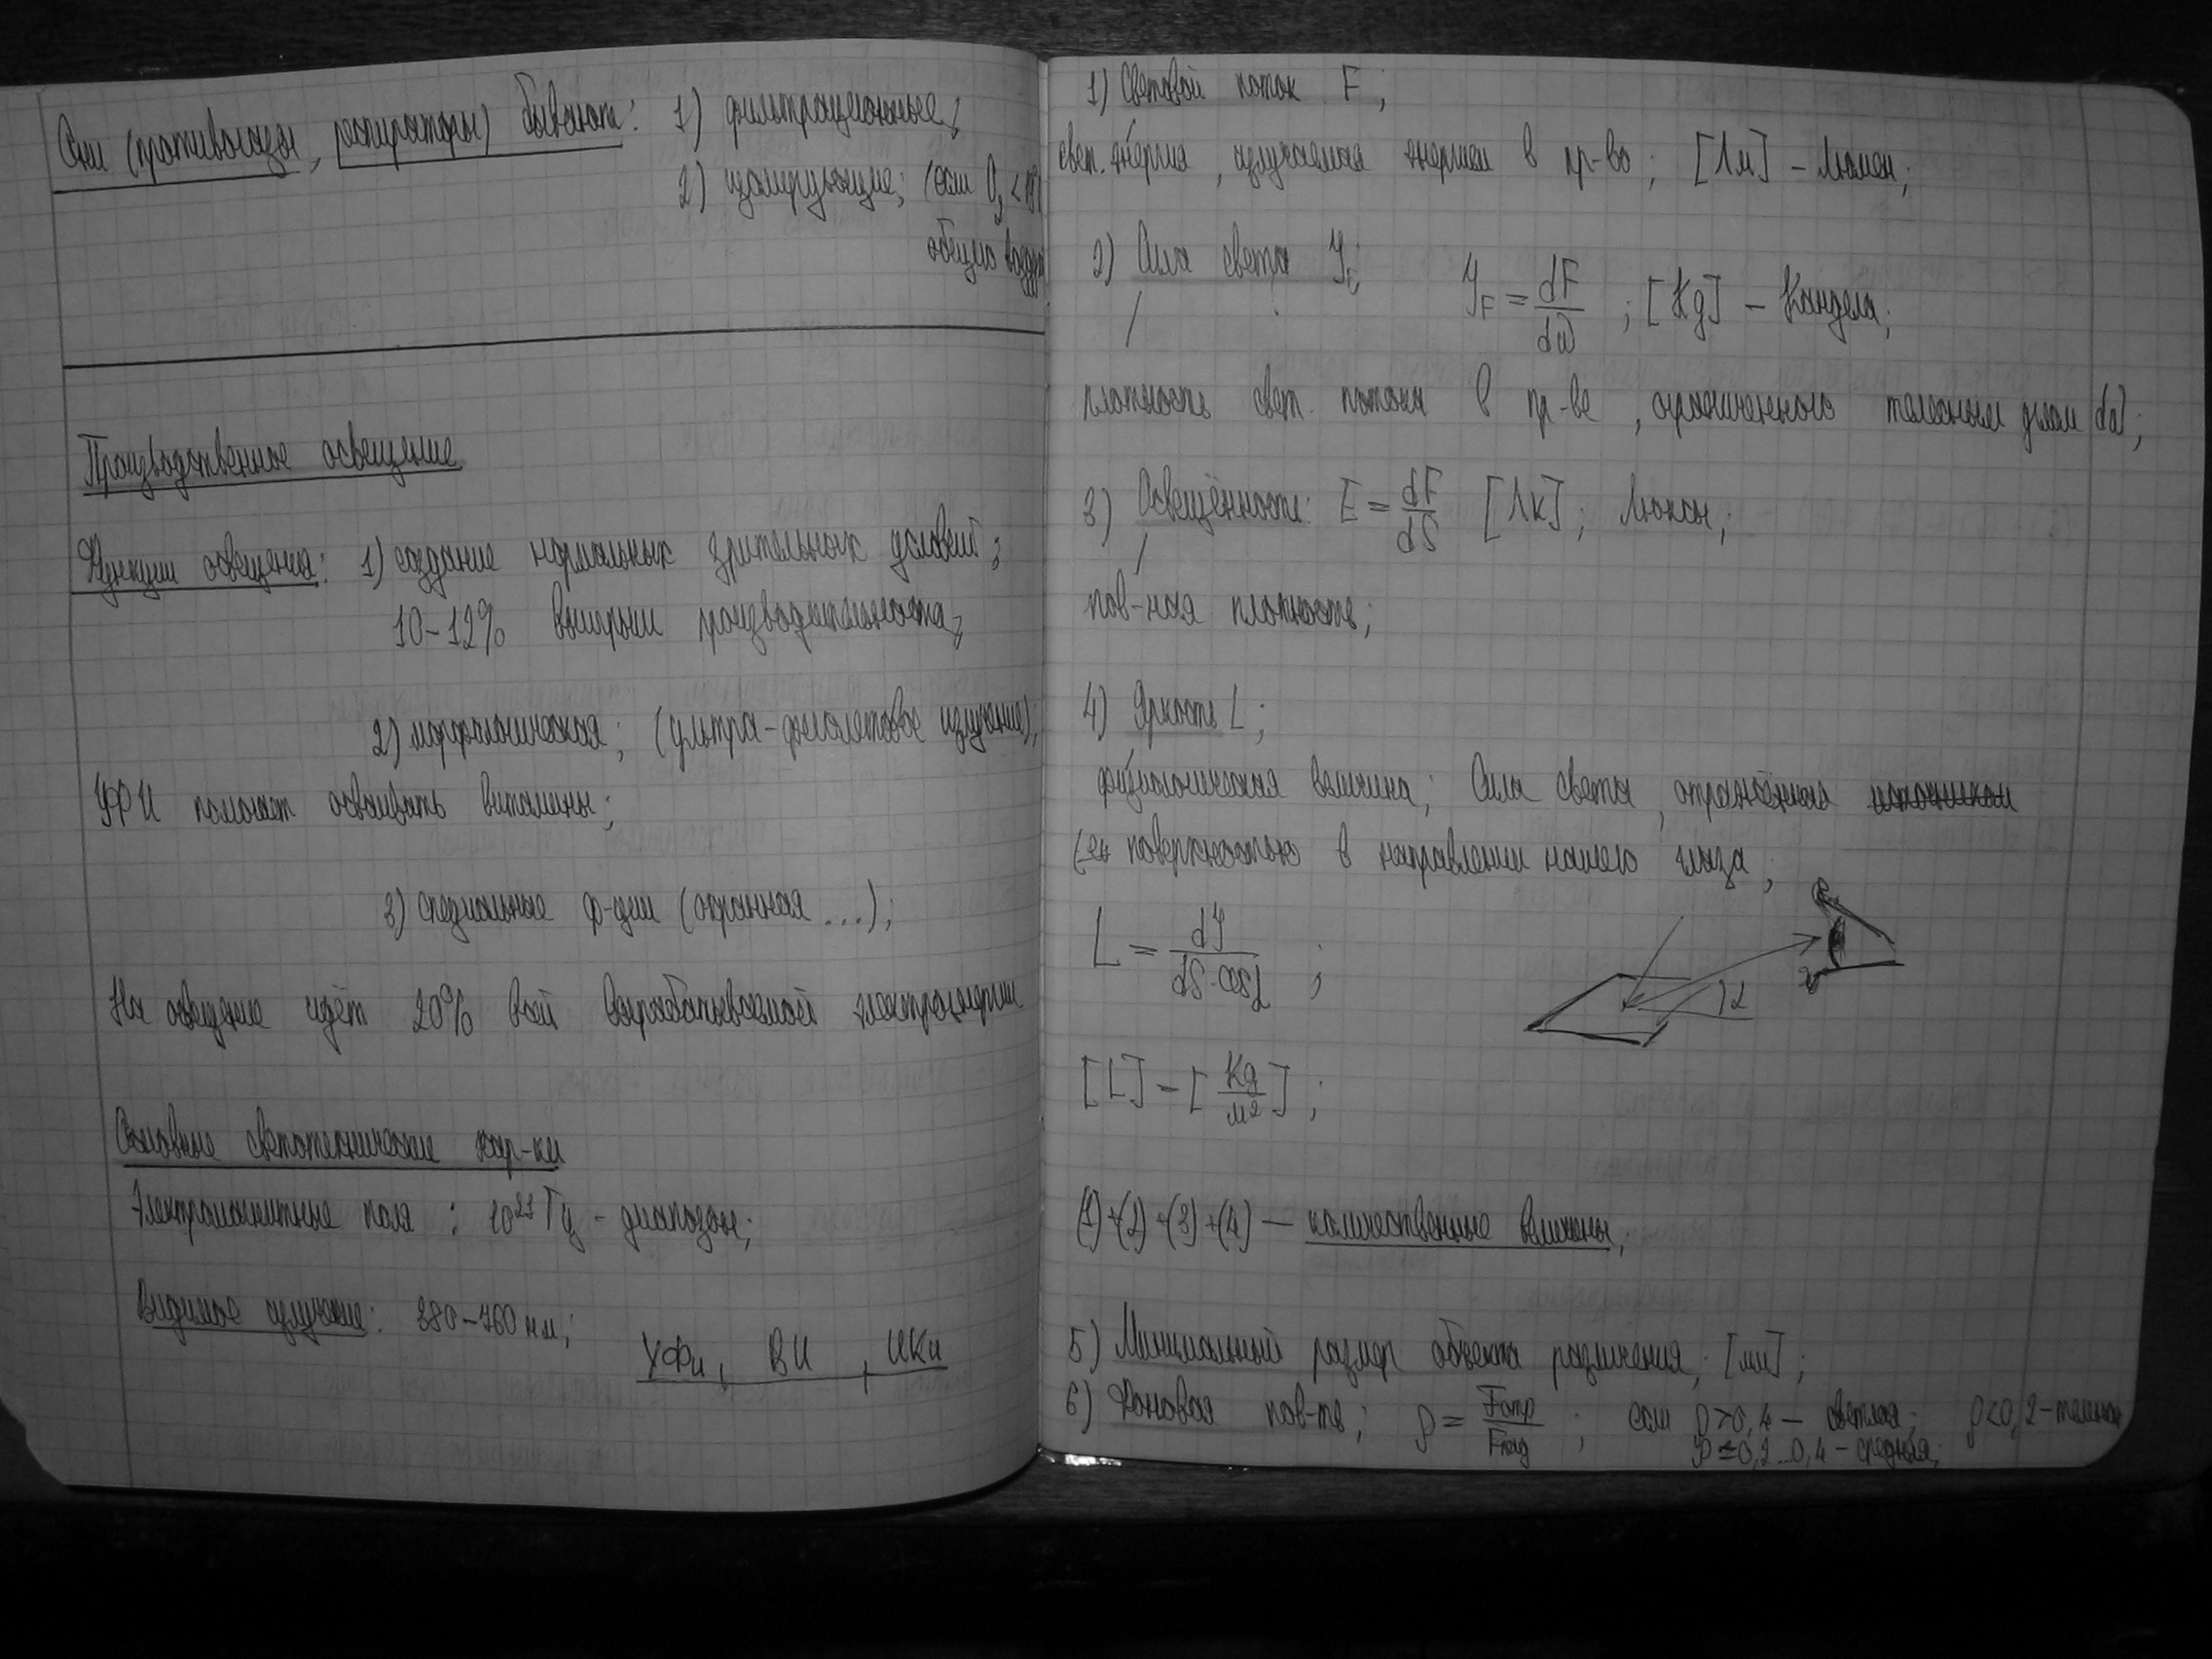 Они (противогазы, респираторы) бывают: 1) фильтрационные;
2) изолирующие; (если O₂ <
общего возд
Производственное освещение
Функции освещения: 1) создание нормальных зрительных условий;
10-12% выигрыш производительности;
2) морфологическая; (ультра-фиолетовое излучение);
УФИ помогает осваивать витамины;
3) специальные ф-ции (охранная ...);
На освещение идёт 20% всей вырабатываемой электроэнергии
Основные светотехнические хар-ки
Электромагнитные поля : 10²¹ Гц - диапазон;
Видимое излучение: 380-760 нм;
УФи, ВИ, ИКи
1) Световой поток F;
свет. энергия, излучаемая энергией в пр-во; [Лм] - Люмен;
2) Сила света J_F; J_F = dF/dω ; [Кд] - Кандела;
плотность свет. потока в пр-ве, ограниченного телесным углом dω;
3) Освещённость: E = dF/dS [Лк]; Люксы;
пов-ная плотность;
4) Яркость L;
физиологическая величина; Сила света, отражённая источником
поверхностью в направлении нашего глаза;
L = dJ/dS·cosα ;
α
[L] - [Кд/м²];
(1)+(2)+(3)+(4) — количественные величины;
5) Минимальный размер объекта различения; [мм];
6) Фоновая пов-ть; ρ = Fотр/Fпад ; если ρ>0,4 - светлая; ρ<0,2 - темная
ρ=0,2...0,4 - средняя;